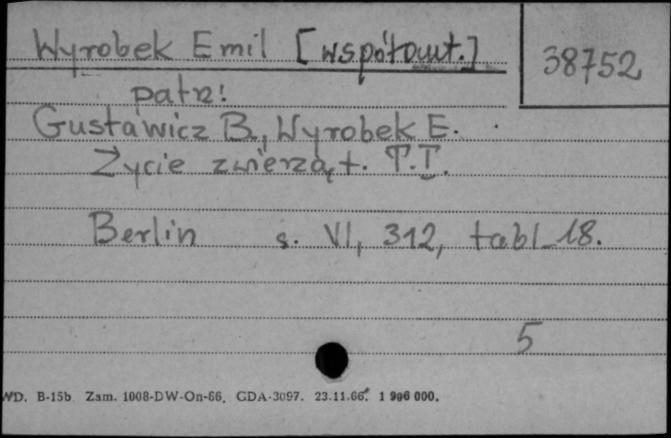 Wyrobek Emil [współaut.]
38752
patrz!
Gustawicz B., Wyrobek E.
Życie zwierząt. T.I.
Berlin s. VI, 312, tabl. 18.
5
WD. B-15b Zam. 1008-DW-On-66. GDA-3097. 23.11.66. 1 996 000.